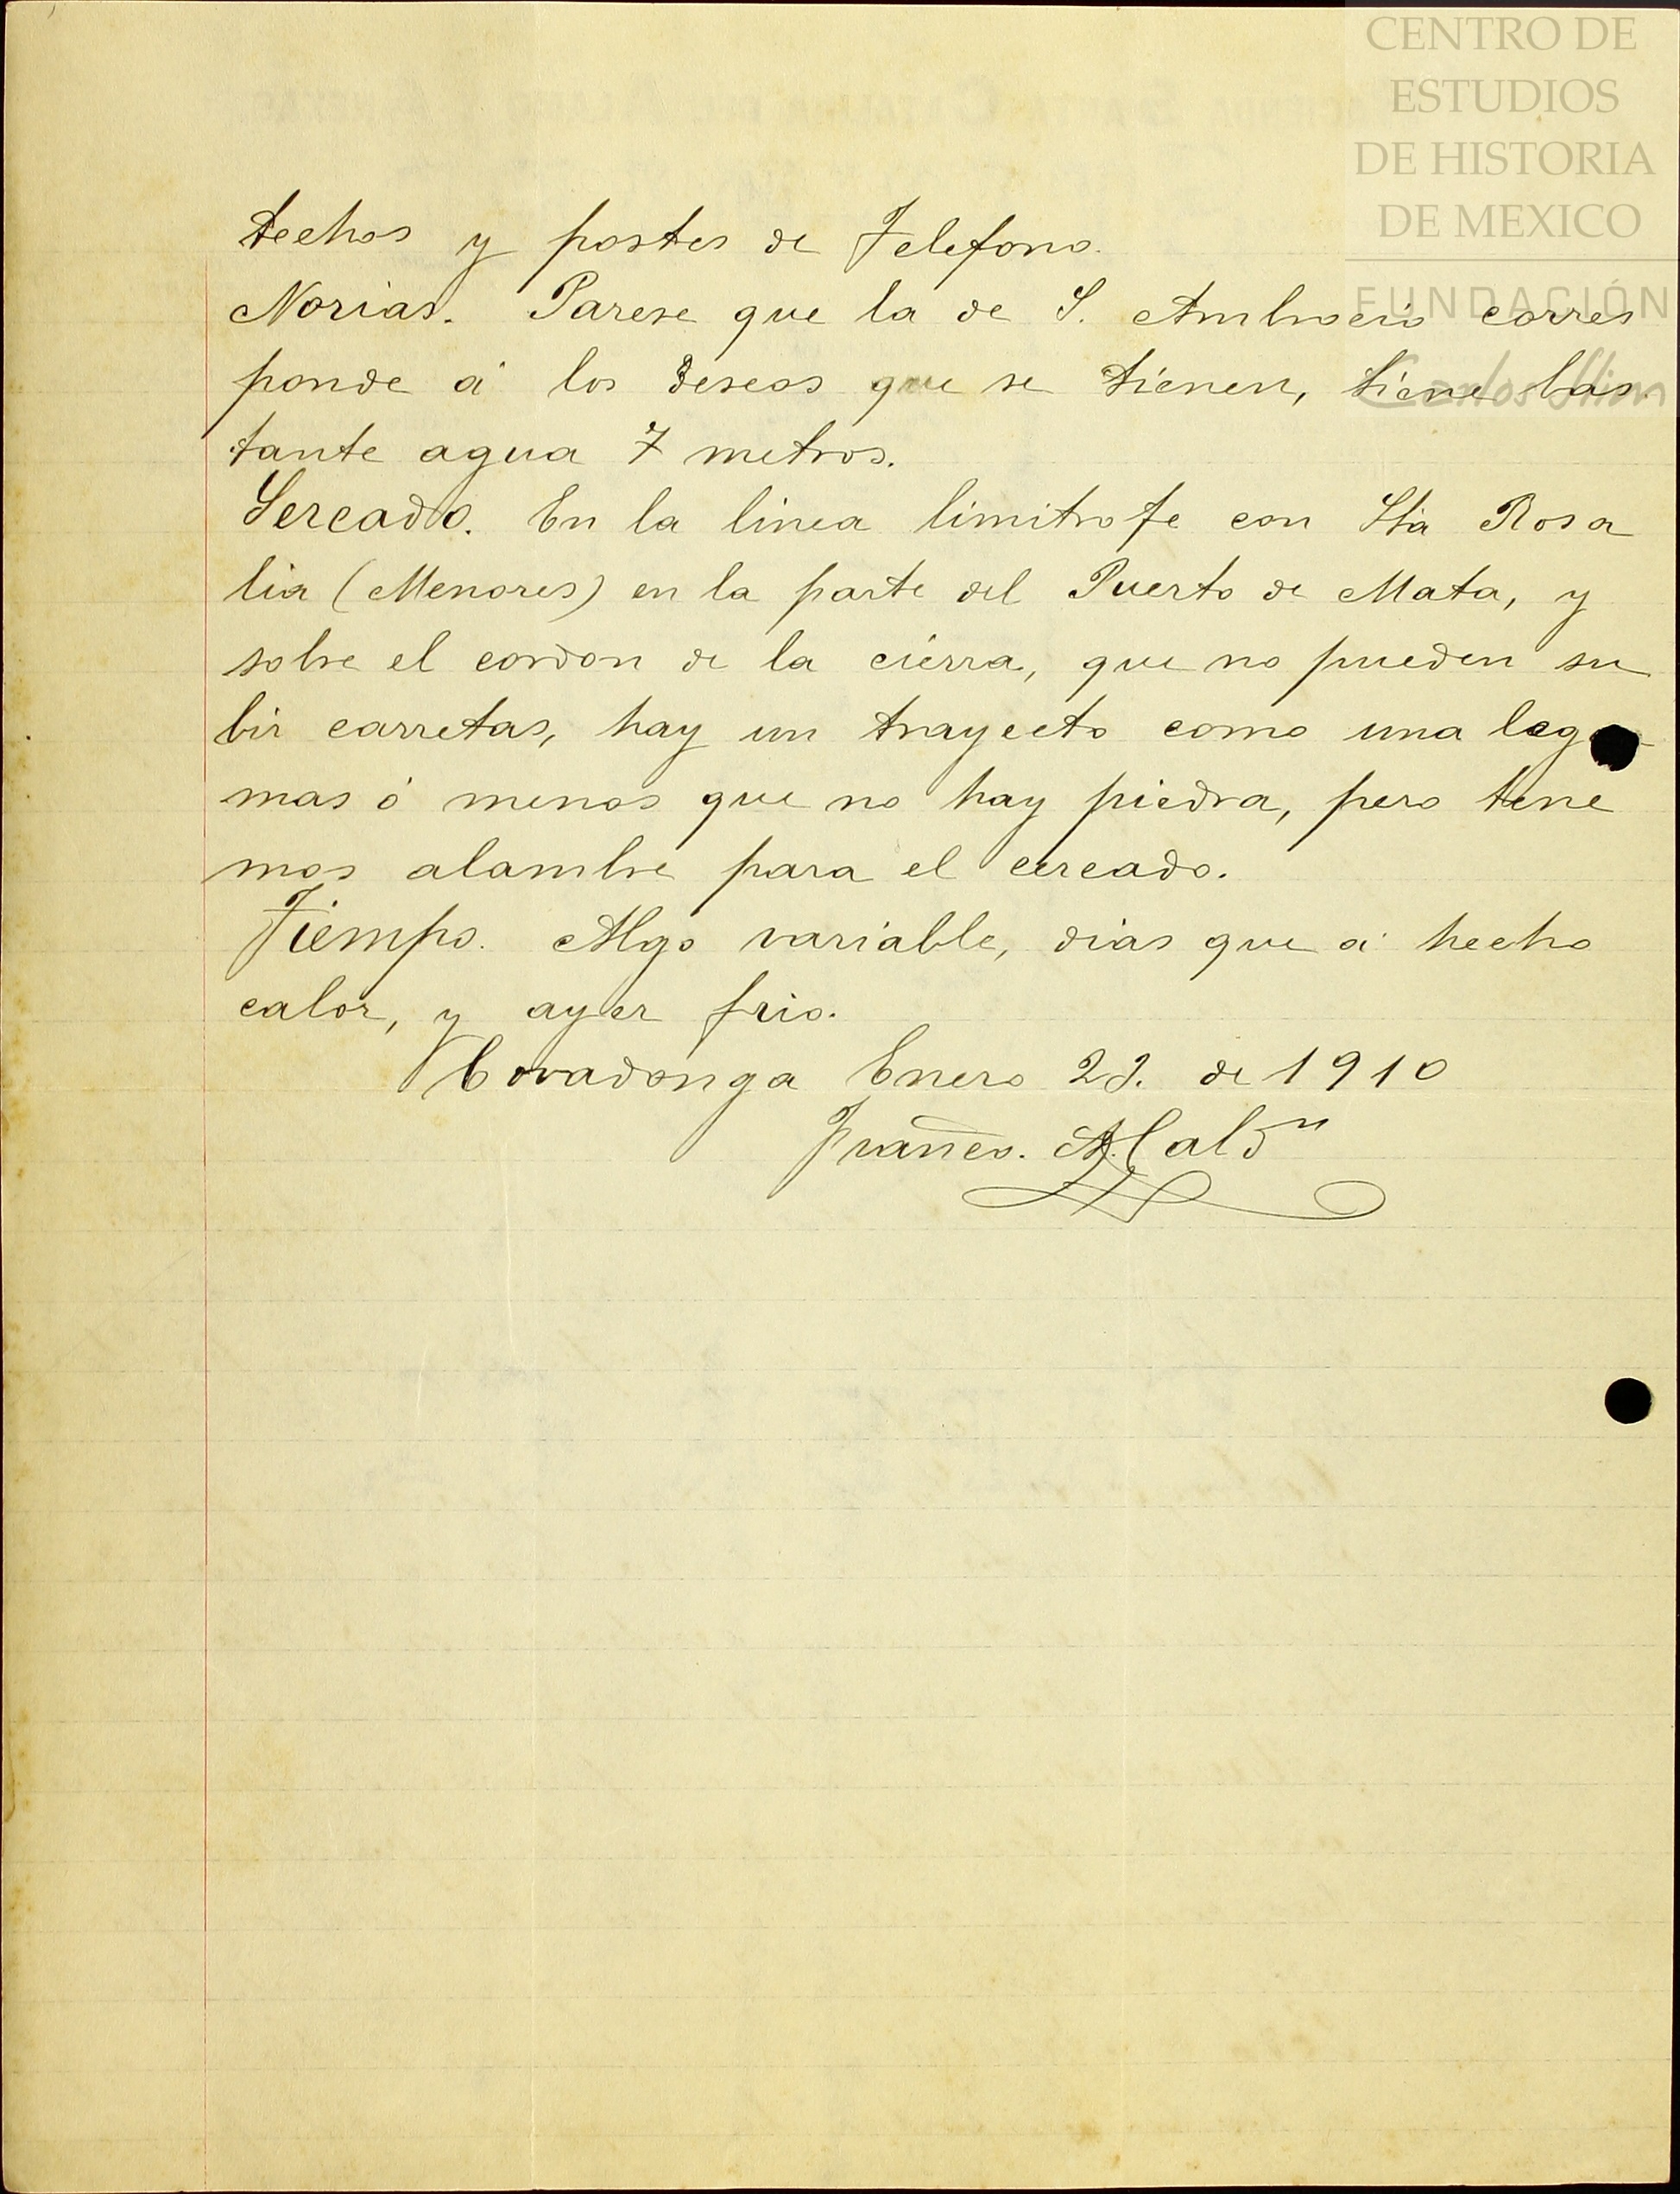 CENTRO DE
ESTUDIOS
DE HISTORIA
DE MEXICO
FUNDACIÓN
Carlos Slim
techos y postes de Telefono.
Norias. Parese que la de S. Ambrocio corres
ponde á los deseos que se tienen, tiene bas
tante agua 7 metros.
Sercado. En la linea limitrofe con Sta Rosa
lia (Menores) en la parte del Puerto de Mata, y
sobre el cordon de la cierra, que no pueden su
bir carretas, hay un trayecto como una
mas ó menos que no hay piedra, pero tene
mos alambre para el cercado.
Tiempo. Algo variable, dias que á hecho
calor, y ayer frio.
Covadonga Enero de 1910
Franco.